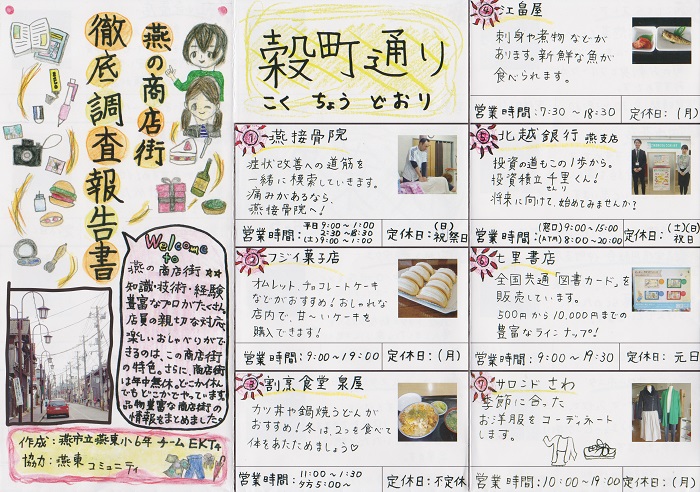 燕の商店街
徹底調査報告書
Welcome
to
燕の商店街
知識・技術・経験
豊富なプロがたくさん
店員の親切な対応
楽しいおしゃべりがで
きるのは、この商店街
の特色。さらに、商店街
は年中無休。どこかくれ
でもどこかでやっています
品物豊富な商店街の
情報をまとめました
作成：燕市立燕東小6年 チームEKT4
協力：燕東コミュニティ
穀町通り
こくちょうどおり
① 燕接骨院
症状改善への道筋を
一緒に模索していきます。
痛みがあるなら、
燕接骨院へ！
営業時間：平日9:00～1:00
2:30～8:30
(土)9:00～1:00
定休日：(日)祝祭日
② フジイ菓子店
オムレット、チョコレートケーキ
などがおすすめ！おしゃれな
店内で、甘～いケーキを
購入できます！
営業時間：9:00～19:00 定休日：(月)
③ 割烹食堂 泉屋
カツ丼や鍋焼うどんが
おすすめ！冬は、2つを食べて
体をあたためましょう♡
営業時間：11:00～1:30
夕方5:00～
定休日：不定休
④ 江畠屋
刺身や煮物などが
あります。新鮮な魚が
食べられます。
営業時間：7:30～18:30 定休日：(月)
⑤ 北越銀行 燕支店
投資の道もこの1歩から。
投資積立千里くん！
せんり
将来に向けて、始めてみませんか？
営業時間：(窓口)9:00～15:00
(ATM)8:00～20:00
定休日：(土)(日)祝日
⑥ 七里書店
全国共通「図書カード」を
販売しています。
500円から10,000円までの
豊富なラインナップ！
営業時間：9:00～19:30 定休日：元日
⑦ サロンド さわ
季節に合った
お洋服をコーディネート
します。
営業時間：10:00～19:00 定休日：(月)